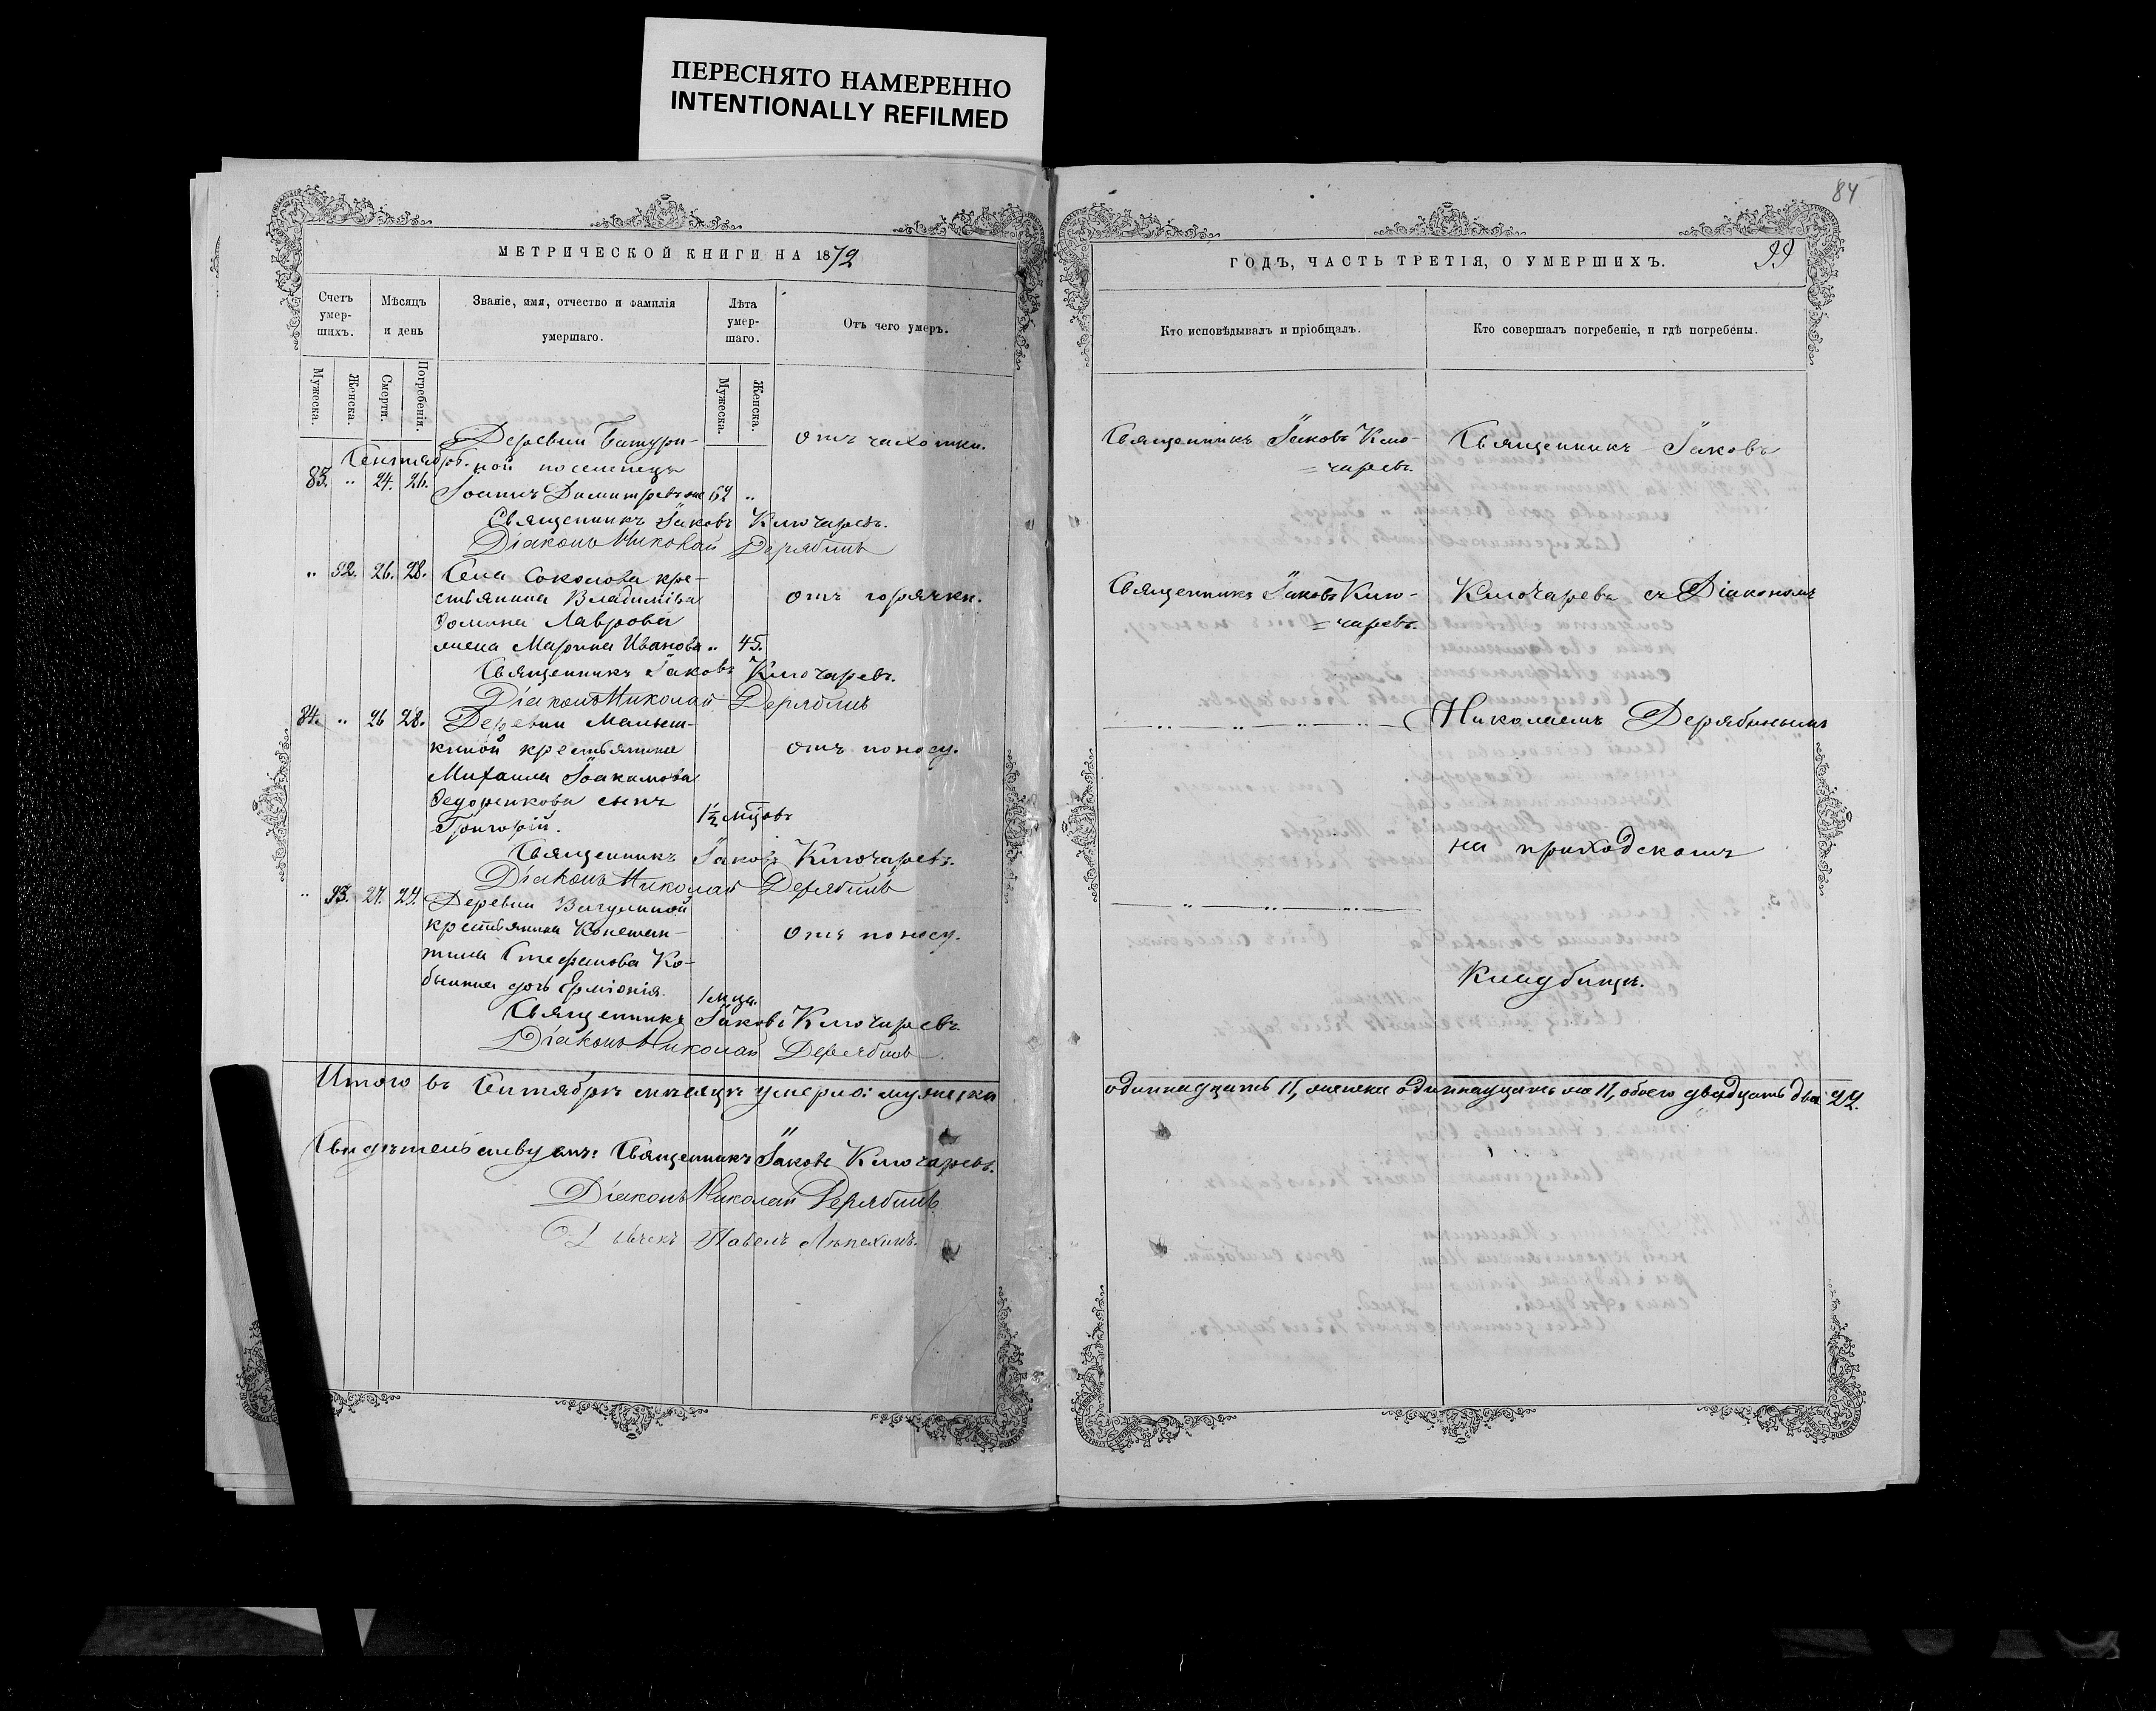 ПЕРЕСНЯТО НАМЕРЕННО
INTENTIONALLY REFILMED
МЕТРИЧЕСКОЙ КНИГИ НА 1872
Счетъ умер-шихъ.
Мѣсяцъ и день
Званіе, имя, отчество и фамилія умершаго.
Лѣта умер-шаго.
Отъ чего умеръ.
Мужеска.
Женска.
Смерти.
Погребенія.
Мужеска.
Женска.
Сентябрь.
Деревни Батури-
ной поселенецъ
83. " 24. 26.
Іоаннъ Димитревъ
"
отъ чахотки.
Священникъ Іаковъ Ключаревъ.
Діаконъ Николай Дерябинъ
" 92. 26. 28. Села Соколова кре-
стьянина Владиміра
Фомина Лаврова
жена Марина Иванова " 45.
отъ горячки.
Священникъ Іаковъ Ключаревъ.
Діаконъ Николай Дерябинъ
84. " 26 28. Деревни Малыш-
киной крестьянина
Михаила Іоакимова
Федоренкова сынъ
Григорій. 1½ мцовъ
отъ поносу.
Священникъ Іаковъ Ключаревъ.
Діаконъ Николай Дерябинъ
" 93. 27. 29. Деревни
крестьянина Констан-
тина Стефанова Ко-
былина дочь Ерміонія. 1 мца.
отъ поносу.
Священникъ Іаковъ Ключаревъ
Діаконъ Николай Дерябинъ.
Итого въ Сентябрѣ мѣсяцѣ умерло: мужеска
Свидѣтельствуютъ: Священникъ Іаковъ Ключаревъ.
Діаконъ Николай Дерябинъ
Павелъ Лѣпехинъ.
84
99
ГОДЪ, ЧАСТЬ ТРЕТІЯ, О УМЕРШИХЪ.
Кто исповѣдывалъ и пріобщалъ.
Кто совершалъ погребеніе, и гдѣ погребены.
Священникъ Іаковъ Клю-
=чаревъ.
Священникъ Іаковъ
Священникъ Іаковъ Клю-
=чаревъ.
Ключаревъ съ Діакономъ
Николаемъ Дерябинымъ
на приходскомъ
Кладбищѣ.
одиннадцать 11, женска одиннадцать же 11, обоего двадцать два 22.